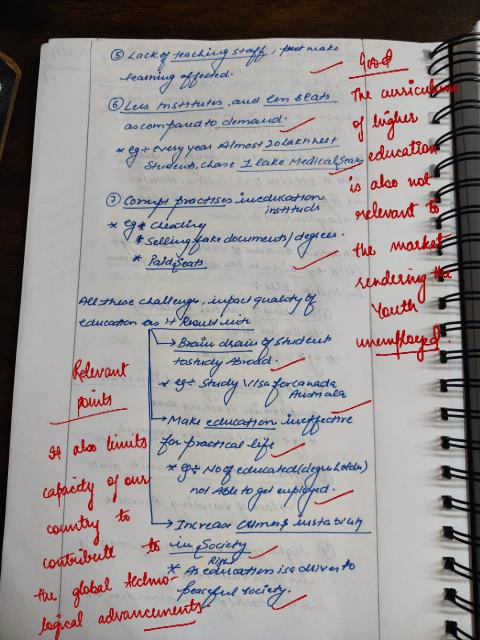 ⑤ Lack of teaching staff, that make
learning affected.
⑥ Less Institutes, and less seats
as compared to demand.
* eg ÷ every year Almost 20 lakh neet
Students, chase 1 lakh Medical Seats
⑦ Corrupt practises in education
institutes
* eg * cheating
* Selling fake documents/degrees.
* Paid Seats
All these challenges, impact quality of
education as it Result into
→ Brain drain of students
to study Abroad.
* eg ÷ Study Visa for canada
Australia
→ Make education ineffective
for practical life
* eg ÷ No of educated (degree holder)
not Able to get employed.
→ Increase instability
in Society
Right
* As education is a driver to
peaceful society.
Good
The curriculum
of higher
education
is also not
relevant to
the market
rendering the
Youth
unemployed.
Relevant
points
It also limits
capacity of our
country to
contribute to
the global techno-
logical advancements